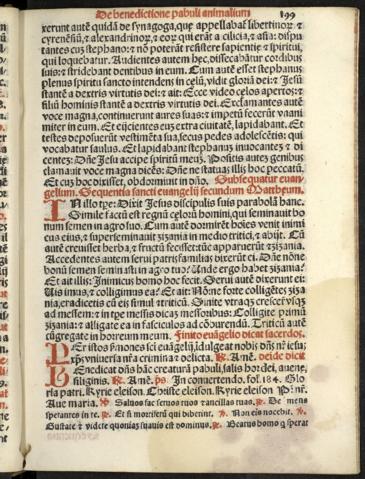 De benedictione pabuli animalium 199
xerunt autē quidā de synagoga, que appellabāt̄ libertinoꝝ: ⁊
cyrenēsiū, ⁊ alexandrinoꝝ, ⁊ eoꝝ qui erāt a cilicia, ⁊ asia: dispu
tantes cuȝ stephano: ⁊ nō poterāt resistere sapientie ⁊ spiritui,
qui loquebatur. Audientes autem hec, dissecabātur cordibus
suis: ⁊ stridebant dentibus in eum. Cum autē esset stephanus
plenus spiritu sancto intendens in celū, vidit gloriā dei: ⁊ Jesū
stantē a dextris virtutis dei: ⁊ ait: Ecce video celos apertos: ⁊
filiū hominis stantē a dextris virtutis dei. Exclamantes autē
voce magna, continuerunt aures suas: ⁊ impetū fecerūt vnani
miter in eum. Et eijcientes euȝ extra ciuitatē, lapidabant. Et
testes deposuerūt vestimēta sua, secus pedes adolescētis: qui
vocabatur saulus. Et lapidabant stephanuȝ inuocantēȝ ⁊ di
centeȝ: Dñe Jesu accipe spiritū meuȝ. Positis autēȝ genibus
clamauit voce magna dicēs: Dñe ne statuas illis hoc peccatū.
Et cuȝ hoc dixisset, obdormiuit in dño. Subsequatur euan-
gelium. Sequentia sancti euangelij secundum Mattheum.
IN illo tp̄e: Dixit Jesus discipulis suis parabolā hanc.
Simile factū est regnū celoꝝ homini, qui seminauit bo
num semen in agro suo. Cum autē dormirēt hoīes venit inimi
cus eius, ⁊ superseminauit zizania in medio tritici, ⁊ abijt. Cū
autē creuisset herba, ⁊ fructū fecisset: tūc apparuerūt ⁊ zizania.
Accedentes autem serui patrisfamilias dixerūt ei. Dñe nōne
bonū semen seminasti in agro tuo? Unde ergo habet zizania?
Et ait illis: Inimicus homo hoc fecit. Serui autē dixerunt ei:
Uis imus, ⁊ colligimus ea? Et ait: Nō ne forte colligētes ziza
nia, eradicetis cū eis simul ⁊ triticū. Sinite vtraqȝ crescere vsqȝ
ad messem: ⁊ in tp̄e messis dicaȝ messoribus: Colligite primū
zizania: ⁊ alligate ea in fasciculos ad cōburendū. Triticū autē
cōgregate in horreum meum. Finito euāgelio dicat sacerdos.
PEr istos sermones sctī euāgelij, idulgeat nobis dñs nr̄ iesuȝ
xp̄s vniuersa nr̄a crimina ⁊ delicta. ℟. Amē. deide dicit
BEnedicat dñs hāc creaturā pabuli, salis hordei, auene,
siliginis. ℟. Amē. ps̄. In conuertendo. fol. 184. Glo
ria patri. Kyrie eleison. Christe eleison. Kyrie eleison Pr̄ nr̄.
Aue maria. ℣. Saluos fac seruos tuos ⁊ ancillas tuas. ℟. De⁹ meus
sperantes in te. ℣. Et si mortiferū qui biberint. ℟. Non eis nocebit. ℣.
Gustate ⁊ videte quoniaȝ suauis est dominus. ℟. Beatus homo q̄ sperat